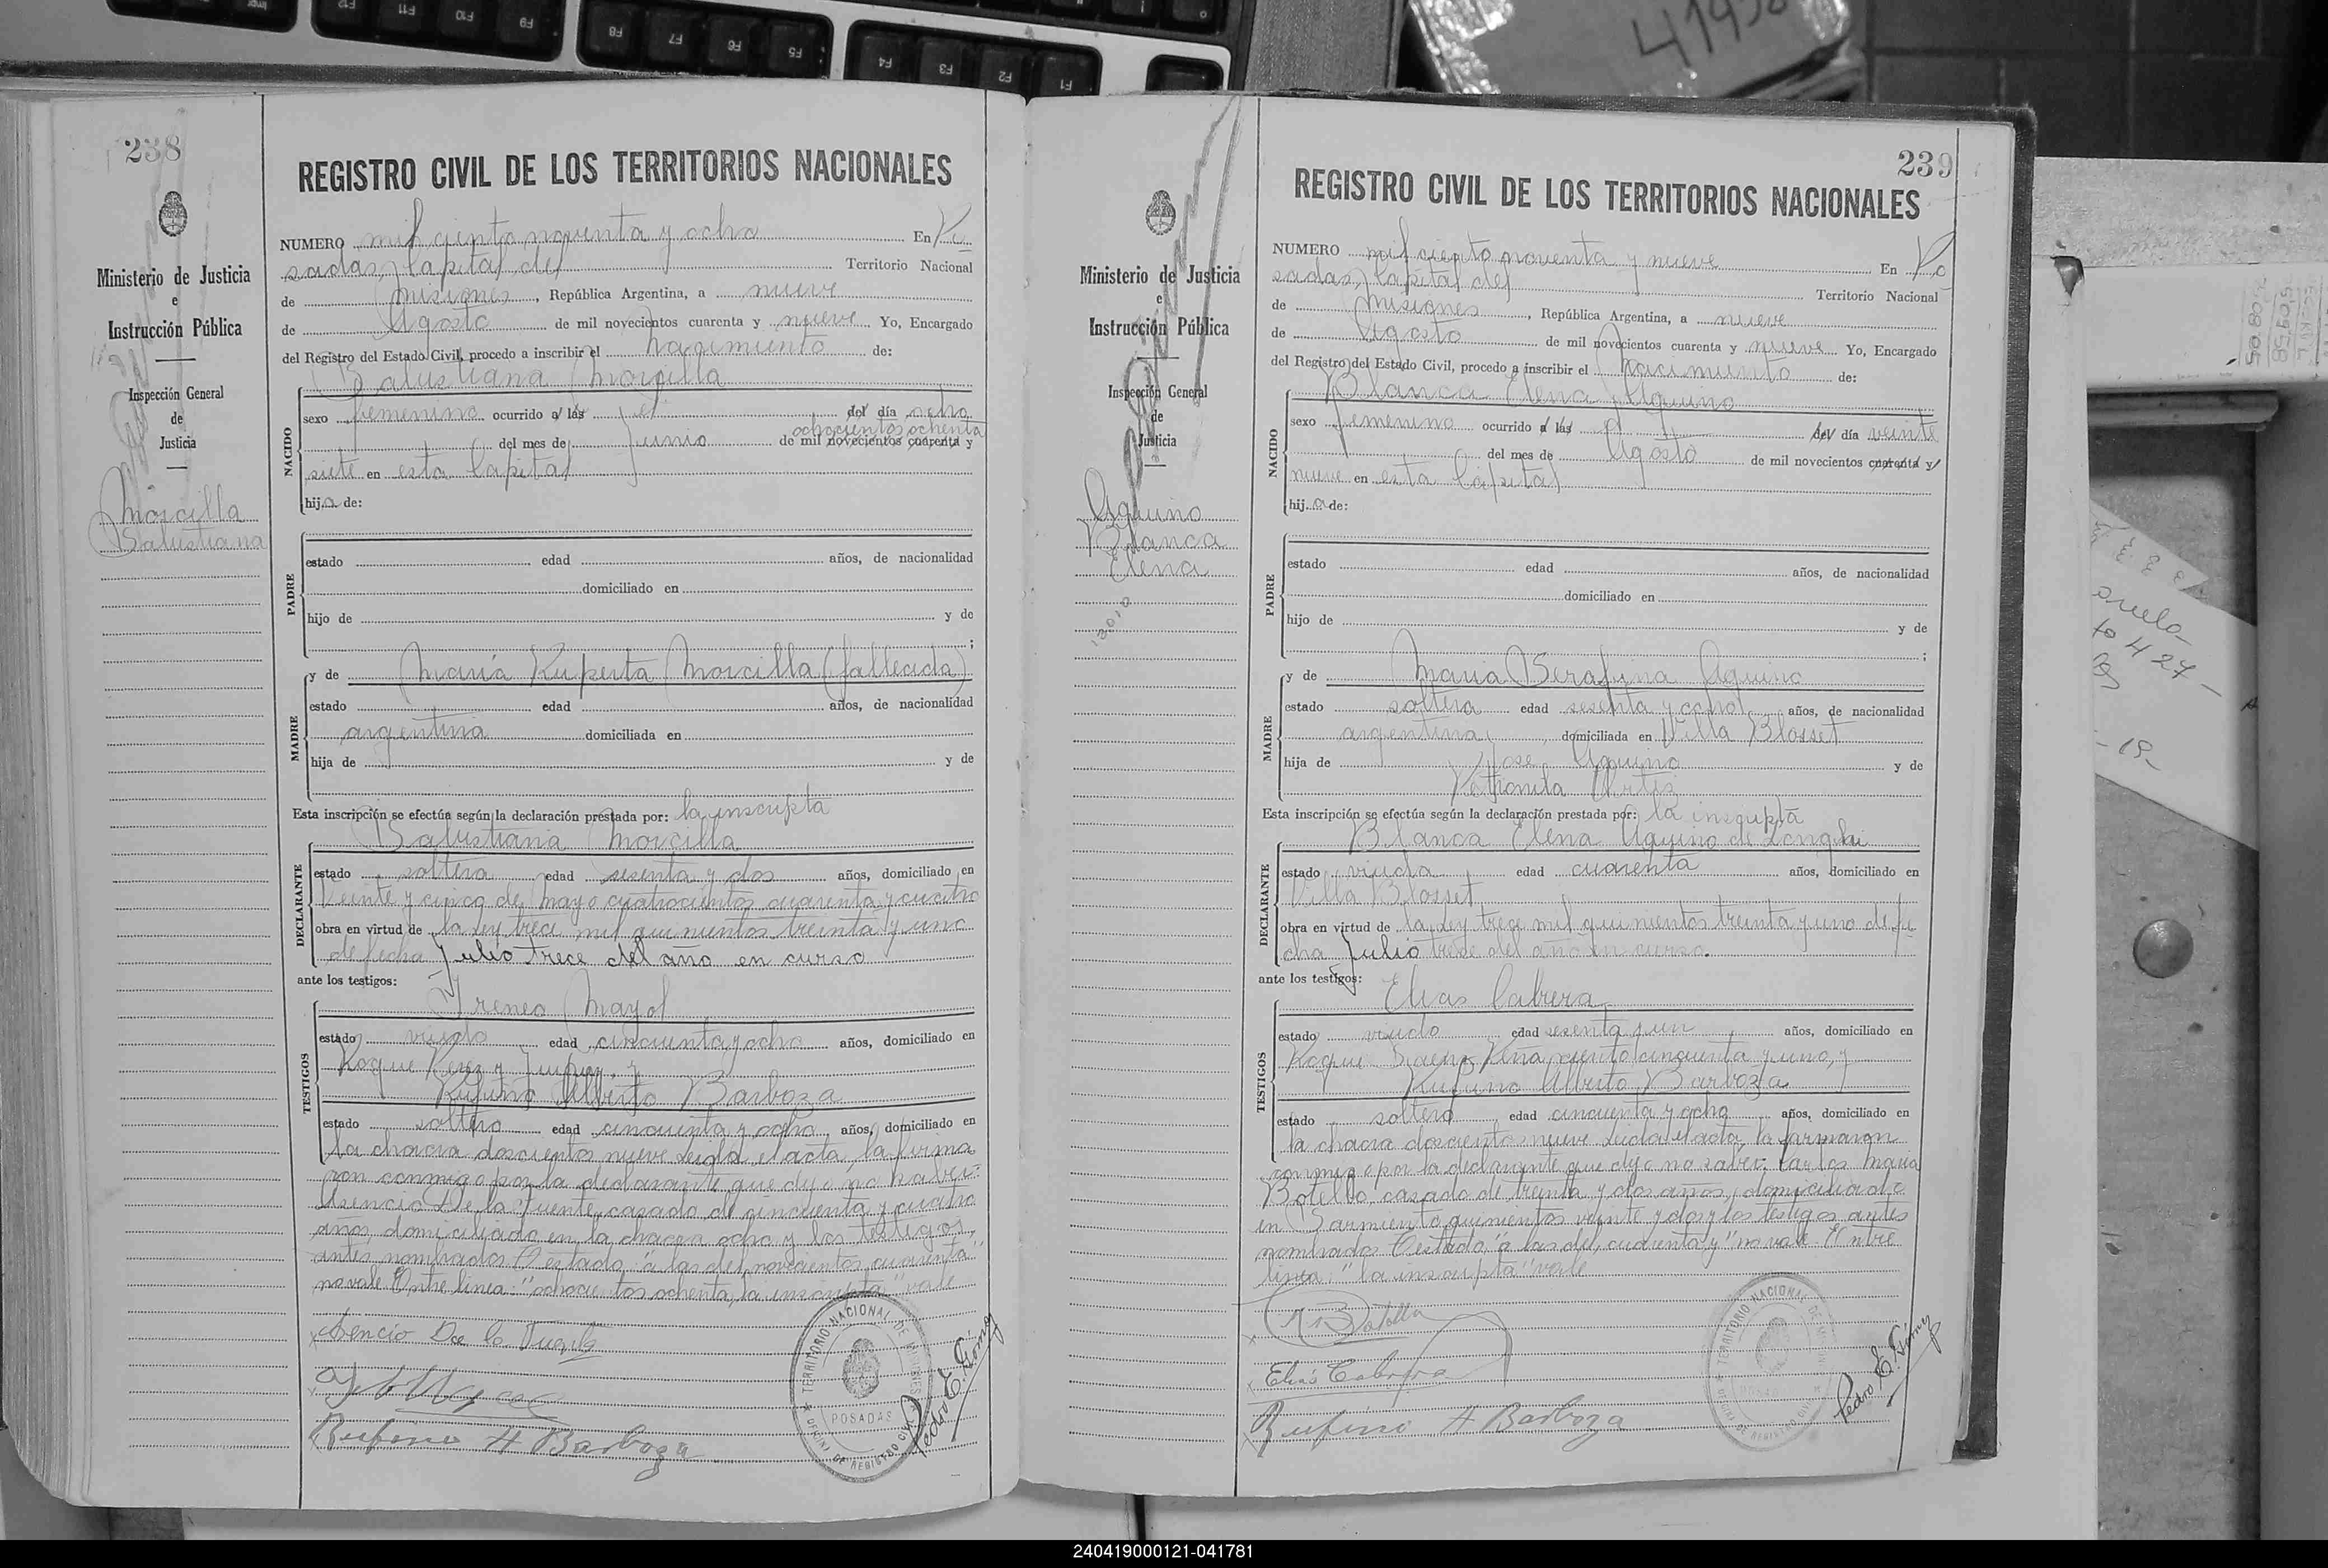 238
REGISTRO CIVIL DE LOS TERRITORIOS NACIONALES
Ministerio de Justicia
e
Instrucción Pública
Inspección General
de
Justicia
Morcilla
Balustiana
NUMERO mil ciento noventa y ocho En Po-
sadas, Capital del Territorio Nacional
de Misiones, República Argentina, a nueve
de Agosto de mil novecientos cuarenta y nueve Yo, Encargado
del Registro del Estado Civil, procedo a inscribir el nacimiento de:
Balustiana Morcilla
NACIDO
sexo femenino ocurrido a las el del día ocho
ochocientos ochenta
del mes de Junio de mil novecientos cuarenta y
siete en esta Capital
hija de:
PADRE
estado edad años, de nacionalidad
domiciliado en
hijo de y de
;
MADRE
y de María Ruperta Morcilla (fallecida)
estado edad años, de nacionalidad
argentina domiciliada en
hija de y de
Esta inscripción se efectúa según la declaración prestada por: la inscripta
Balustiana Morcilla
DECLARANTE
estado soltera edad sesenta y dos años, domiciliado en
Veinte y cinco de Mayo cuatrocientos cuarenta y cuatro
obra en virtud de la ley trece mil quinientos treinta y uno
de fecha Julio trece del año en curso
ante los testigos:
TESTIGOS
Ireneo Mayol
estado viudo edad cincuenta y ocho años, domiciliado en
Roque Perez y Jujuy, y
Rufino Alberto Barboza
estado soltero edad cincuenta y ocho años, domiciliado en
la chacra doscientos nueve Leida el acta, la firma
ron conmigo por la declarante, que dijo no saber:
Asencio De la Fuente, casado de cincuenta y cuatro
años, domiciliado en la chacra ocho y los testigos
antes nombrados Testado "a las del novecientos cuarenta"
no vale Entre linea: "ochocientos ochenta, la inscripta" vale
Asencio De la Fuente
Rufino A Barboza
TERRITORIO NACIONAL DE MISIONES
POSADAS
OFICINA DE REGISTRO CIVIL
Pedro E. Giménez
239
REGISTRO CIVIL DE LOS TERRITORIOS NACIONALES
Ministerio de Justicia
e
Instrucción Pública
Inspección General
de
Justicia
Aquino
Blanca
Elena
13010
NUMERO mil ciento noventa y nueve En Po
sadas, Capital del Territorio Nacional
de Misiones, República Argentina, a nueve
de Agosto de mil novecientos cuarenta y nueve Yo, Encargado
del Registro del Estado Civil, procedo a inscribir el nacimiento de:
Blanca Elena Aquino
NACIDO
sexo femenino ocurrido a las el del día veinte
del mes de Agosto de mil novecientos cuarenta y
nueve en esta Capital
hija de:
PADRE
estado edad años, de nacionalidad
domiciliado en
hijo de y de
;
MADRE
y de Maria Serafina Aquino
estado soltera edad sesenta y ocho años, de nacionalidad
argentina, domiciliada en Villa Blosset
hija de Jose Aquino y de
Petronila Ortiz
Esta inscripción se efectúa según la declaración prestada por: la inscripta
Blanca Elena Aquino de Longhi
DECLARANTE
estado viuda edad cuarenta años, domiciliado en
Villa Blosset
obra en virtud de la ley trece mil quinientos treinta y uno de fe-
cha Julio trece del año en curso.
ante los testigos:
TESTIGOS
Elias Cabrera
estado viudo edad sesenta y un años, domiciliado en
Roque Saenz Peña ciento cincuenta y uno, y
Rufino Alberto Barboza
estado soltero edad cincuenta y ocho años, domiciliado en
la chacra doscientos nueve Leida el acta, la firmaron
conmigo por la declarante que dijo no saber: Carlos Maria
Botello, casado de treinta y dos años, domiciliado
en Sarmiento quinientos veinte y dos y los testigos antes
nombrados Testado "a las del cuarenta y" no vale Entre
linea: "la inscripta" vale
Elias Cabrera
Rufino A Barboza
TERRITORIO NACIONAL DE MISIONES
POSADAS
OFICINA DE REGISTRO CIVIL
Pedro E. Giménez
240419000121-041781